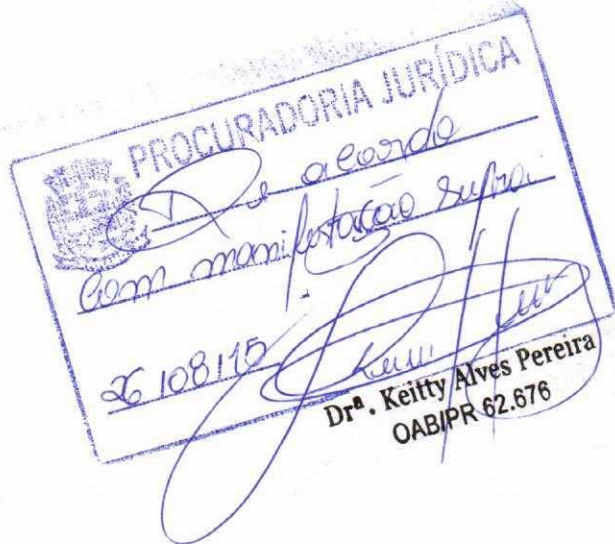 PROCURADORIA JURÍDICA
De acordo
com manifestação supra.
26/08/15
Drª. Keitty Alves Pereira
OAB/PR 62.676